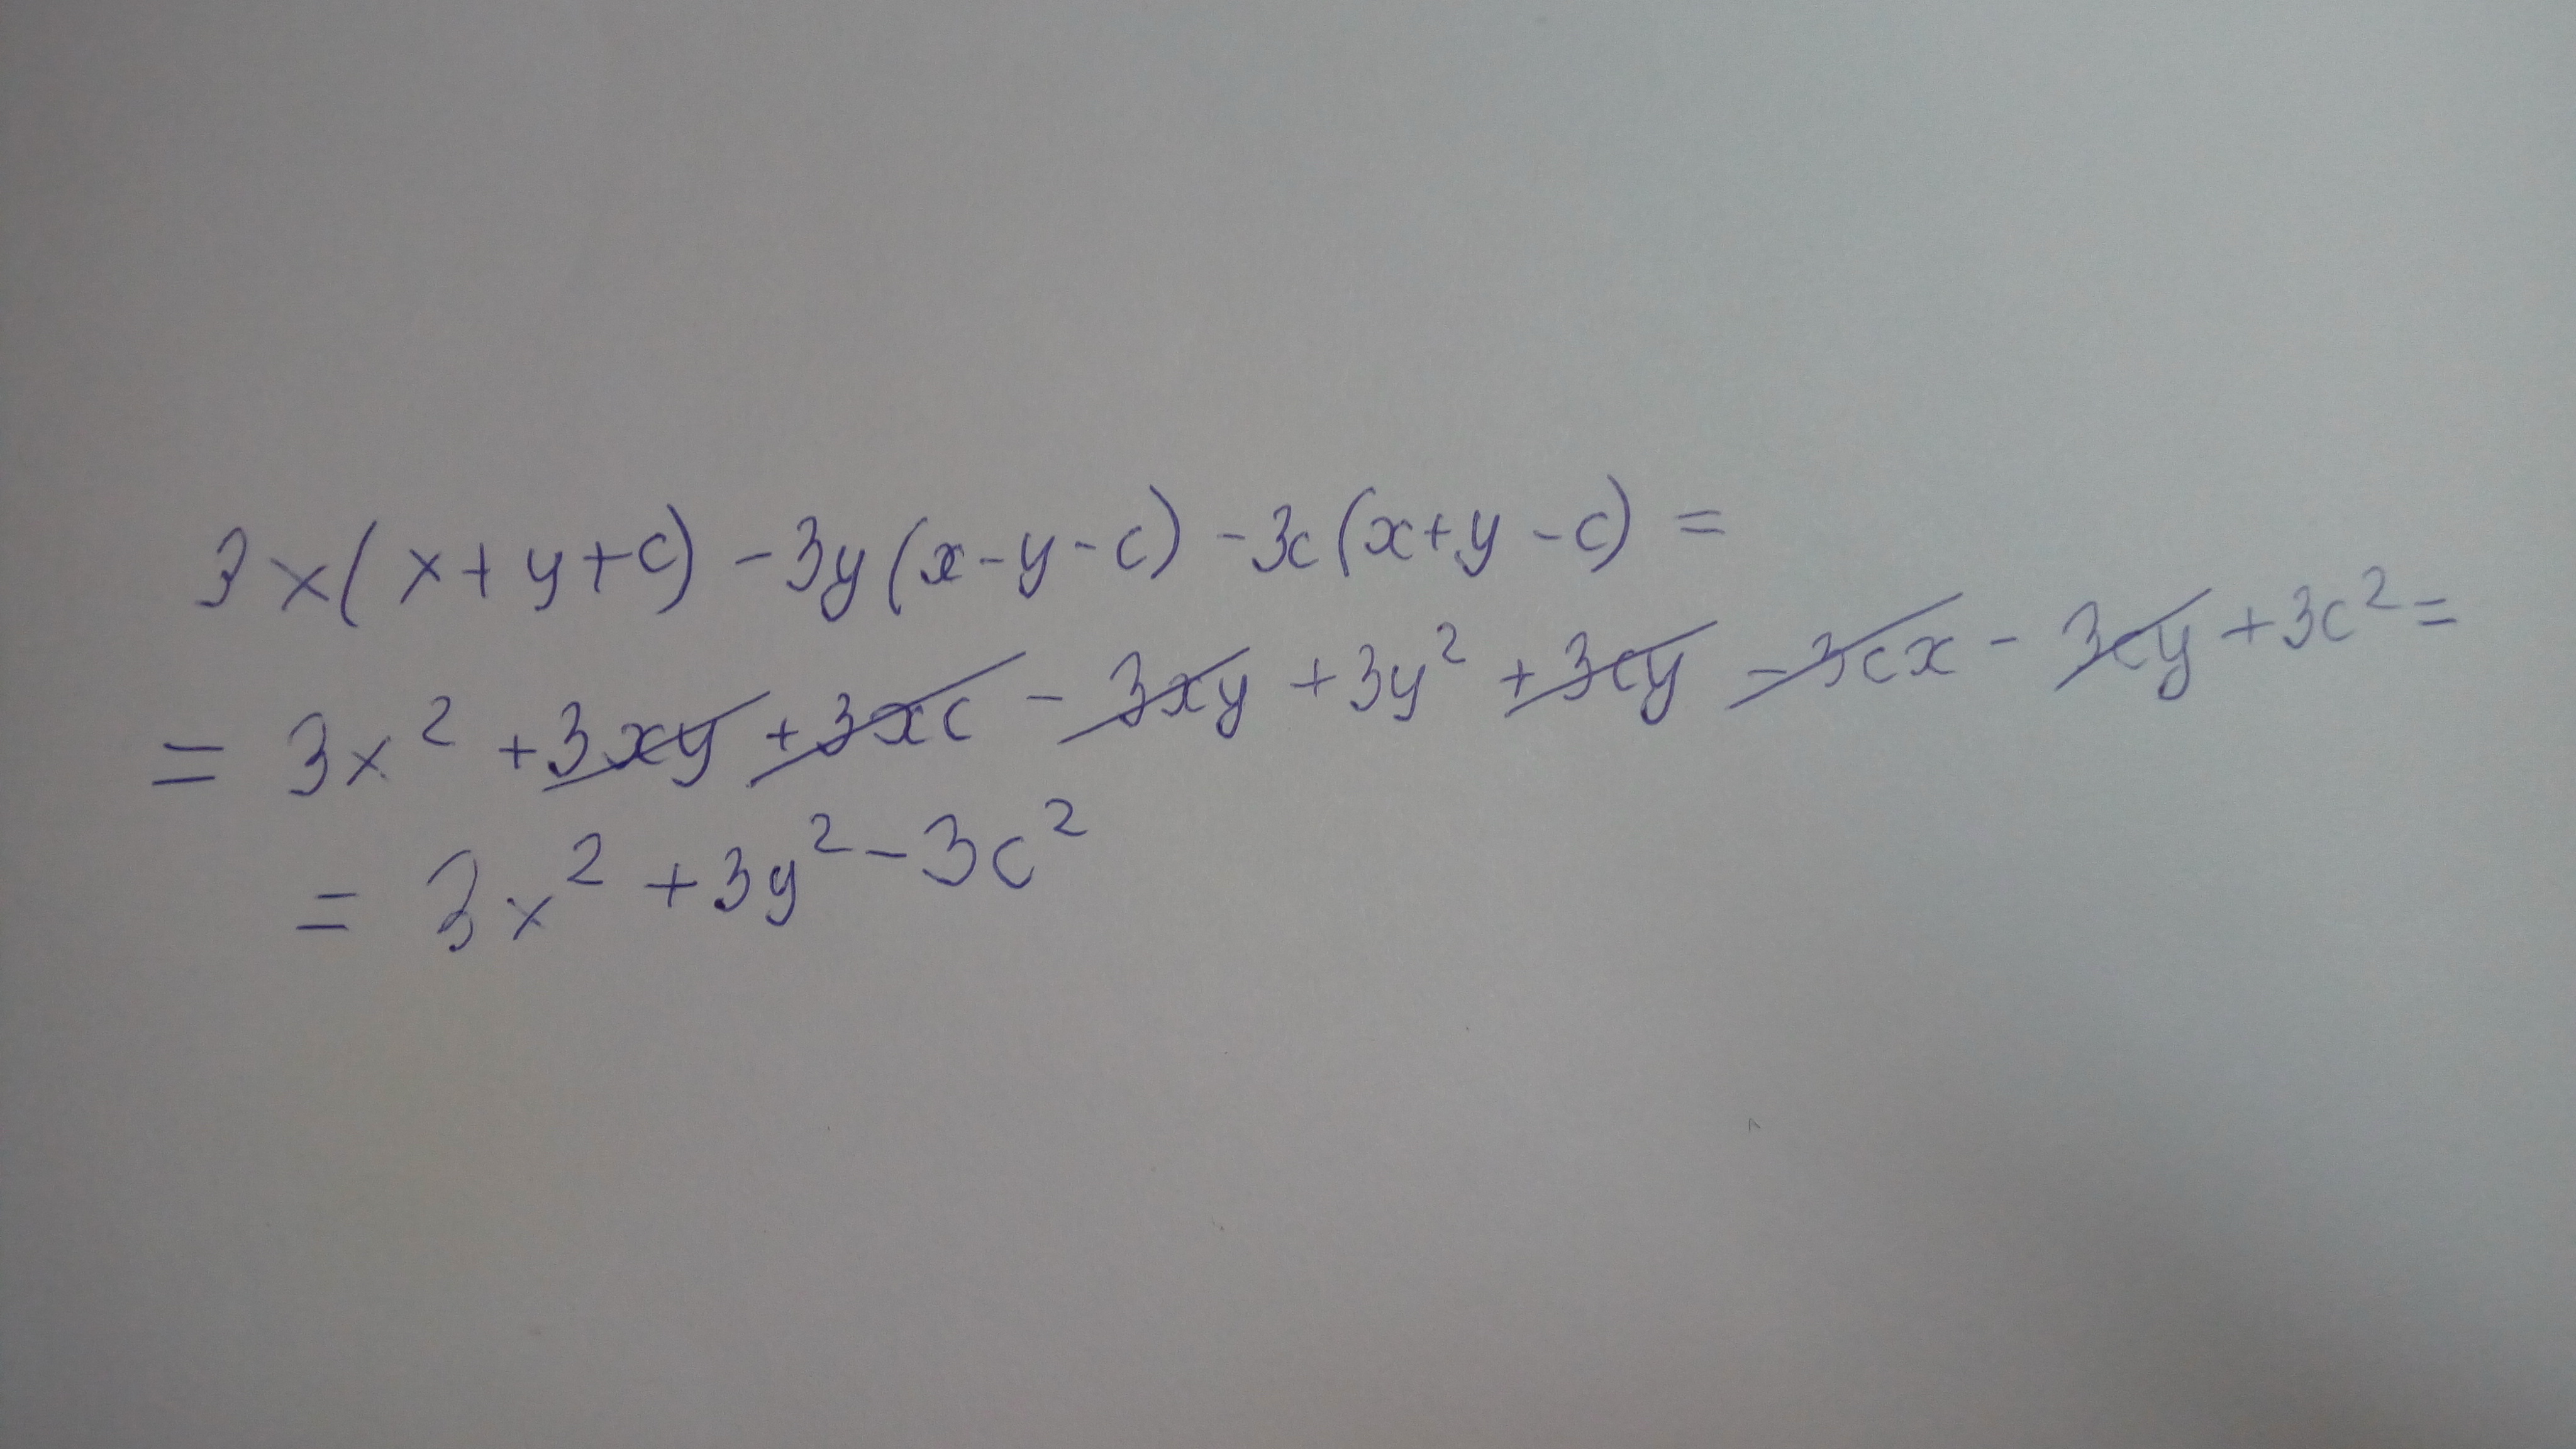 3x(x+y+c) -3y(x-y-c) -3c(x+y-c) =
= 3x² +3xy +3xc - 3xy +3y² +3cy -3cx - 3cy +3c² =
= 3x² +3y² -3c²